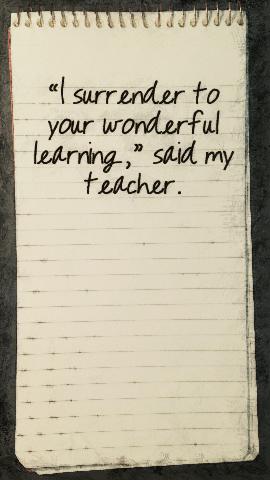 "I surrender to
your wonderful
learning," said my
teacher.